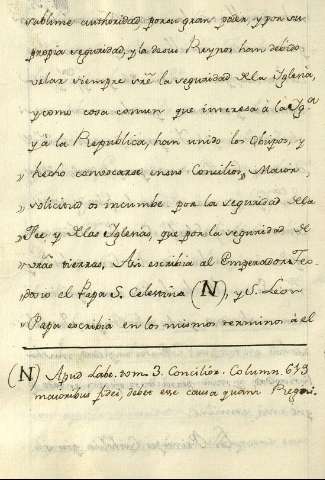 sublime authoridad, por su gran poder, y por su
propia seguridad, y la de sus Reynos han debido
velar siempre sre la seguridad de la Iglesia,
y como cosa comun que interesa á la Igª
y á la Republica, han unido los Obispos, y
hecho convocarse en sus Concilios, Maior
" solicitud os incumbe por la seguridad de la
" Fee y de las Iglesias, que por la seguridad de
" vras tierras, Asi escribia al Emperador Teo
dosio el Papa S. Celestino (N), y S. Leon
" Papa escribia en los mismos terminos á el
(N) Apud Labe. tom. 3. Concilior. Column. 619
maior vobis fidei, debet esse causa quam Regni.